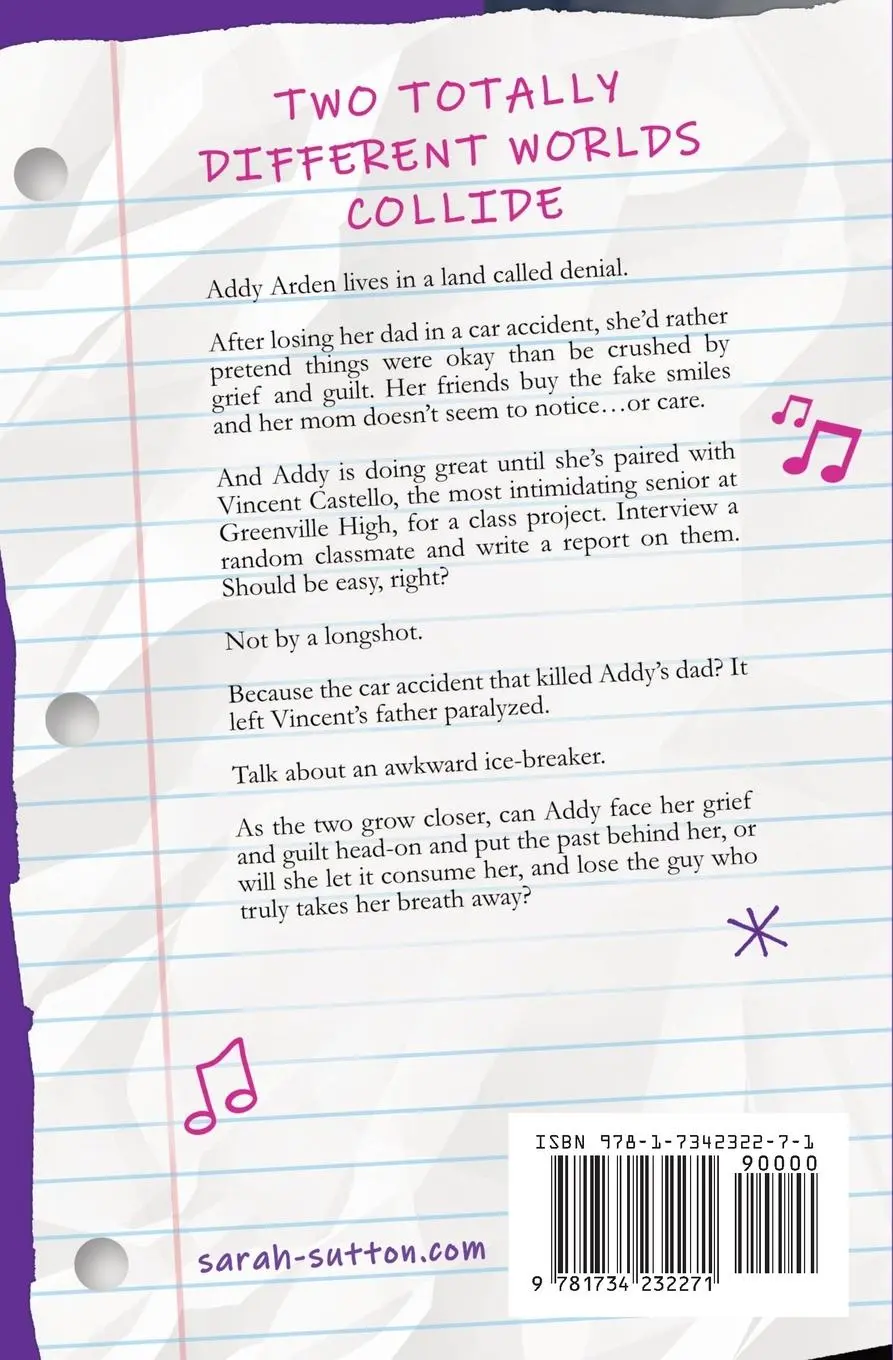 TWO TOTALLY
DIFFERENT WORLDS
COLLIDE
Addy Arden lives in a land called denial.
After losing her dad in a car accident, she’d rather
pretend things were okay than be crushed by
grief and guilt. Her friends buy the fake smiles
and her mom doesn’t seem to notice…or care.
And Addy is doing great until she’s paired with
Vincent Castello, the most intimidating senior at
Greenville High, for a class project. Interview a
random classmate and write a report on them.
Should be easy, right?
Not by a longshot.
Because the car accident that killed Addy’s dad? It
left Vincent’s father paralyzed.
Talk about an awkward ice-breaker.
As the two grow closer, can Addy face her grief
and guilt head-on and put the past behind her, or
will she let it consume her, and lose the guy who
truly takes her breath away?
ISBN 978-1-7342322-7-1
90000
sarah-sutton.com
9 781734 232271